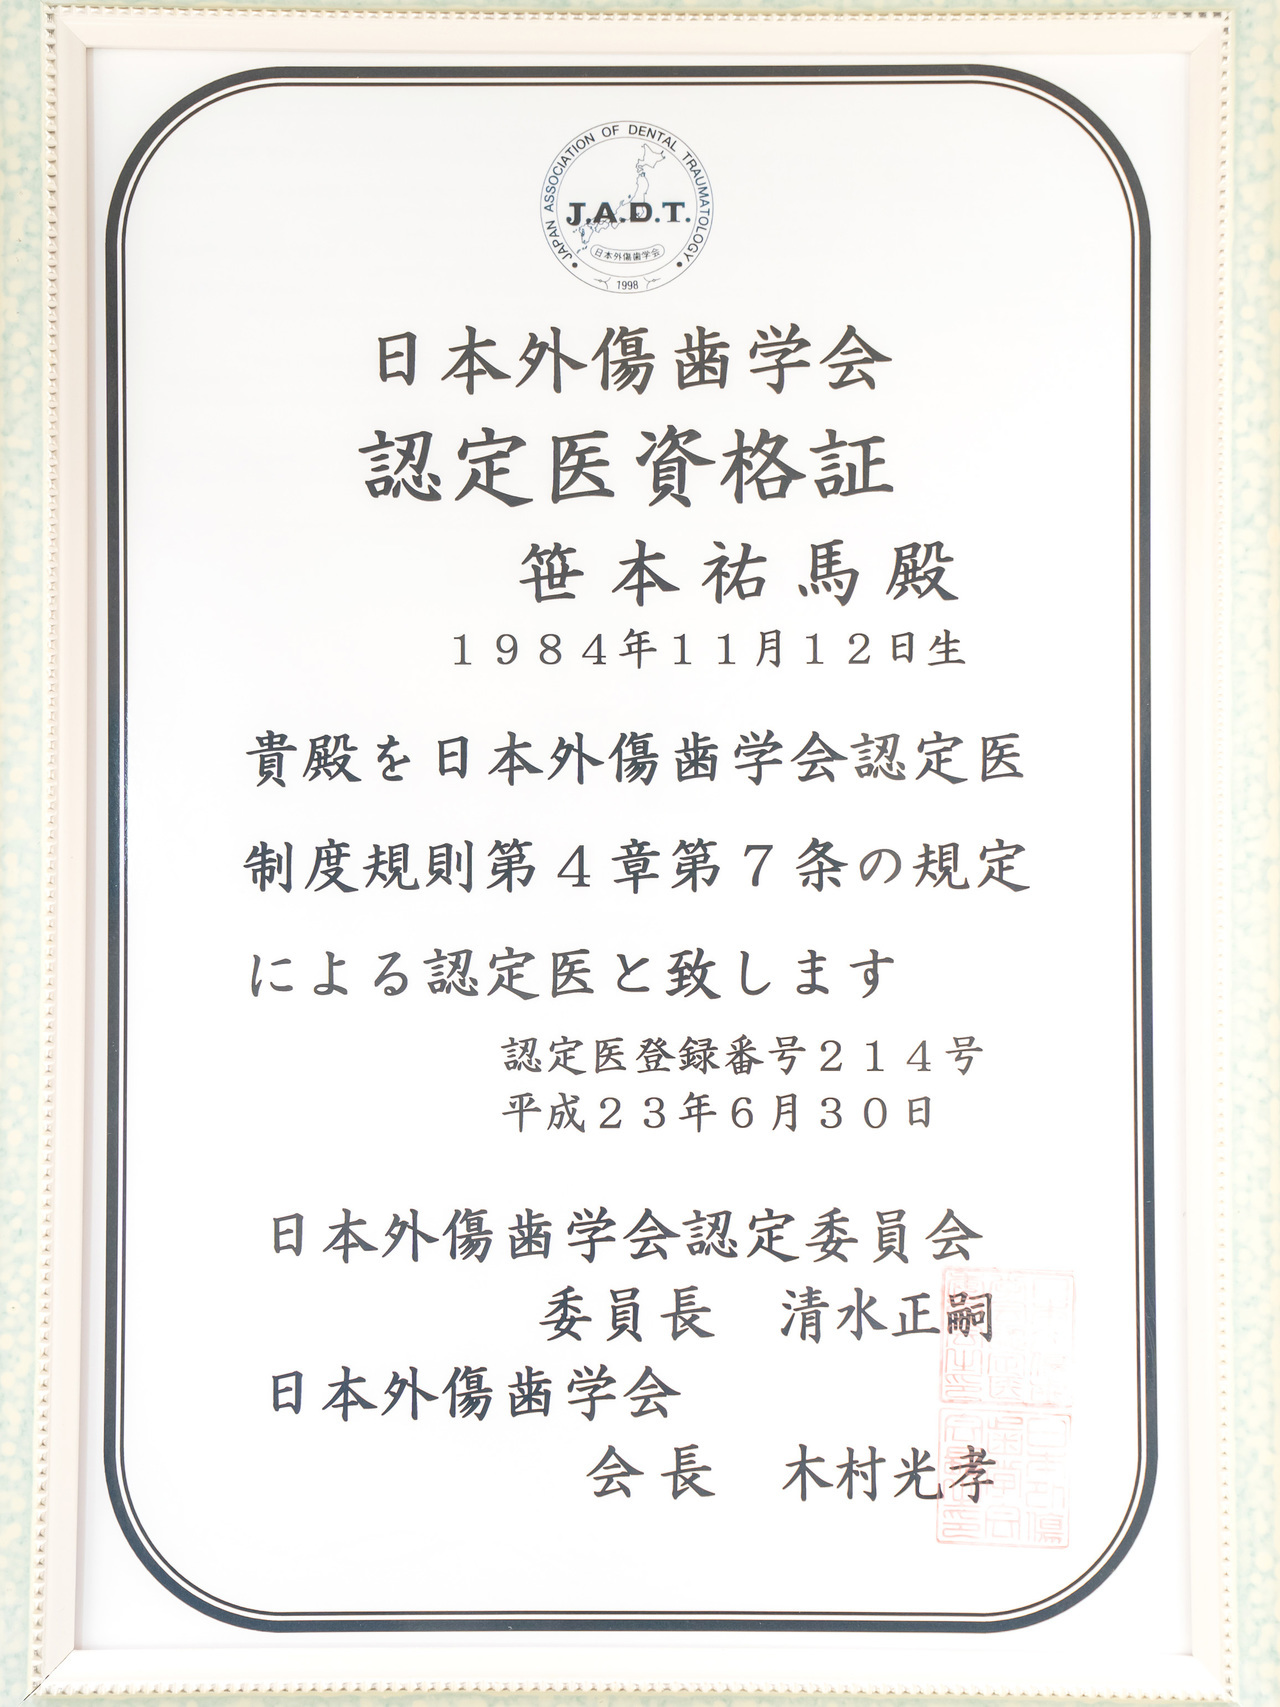 JAPAN ASSOCIATION OF DENTAL TRAUMATOLOGY
J.A.D.T.
日本外傷歯学会
1998
日本外傷歯学会
認定医資格証
笹本祐馬殿
１９８４年１１月１２日生
貴殿を日本外傷歯学会認定医
制度規則第４章第７条の規定
による認定医と致します
認定医登録番号２１４号
平成２３年６月３０日
日本外傷歯学会認定委員会
委員長　清水正嗣
日本外傷歯学会
会長　木村光孝